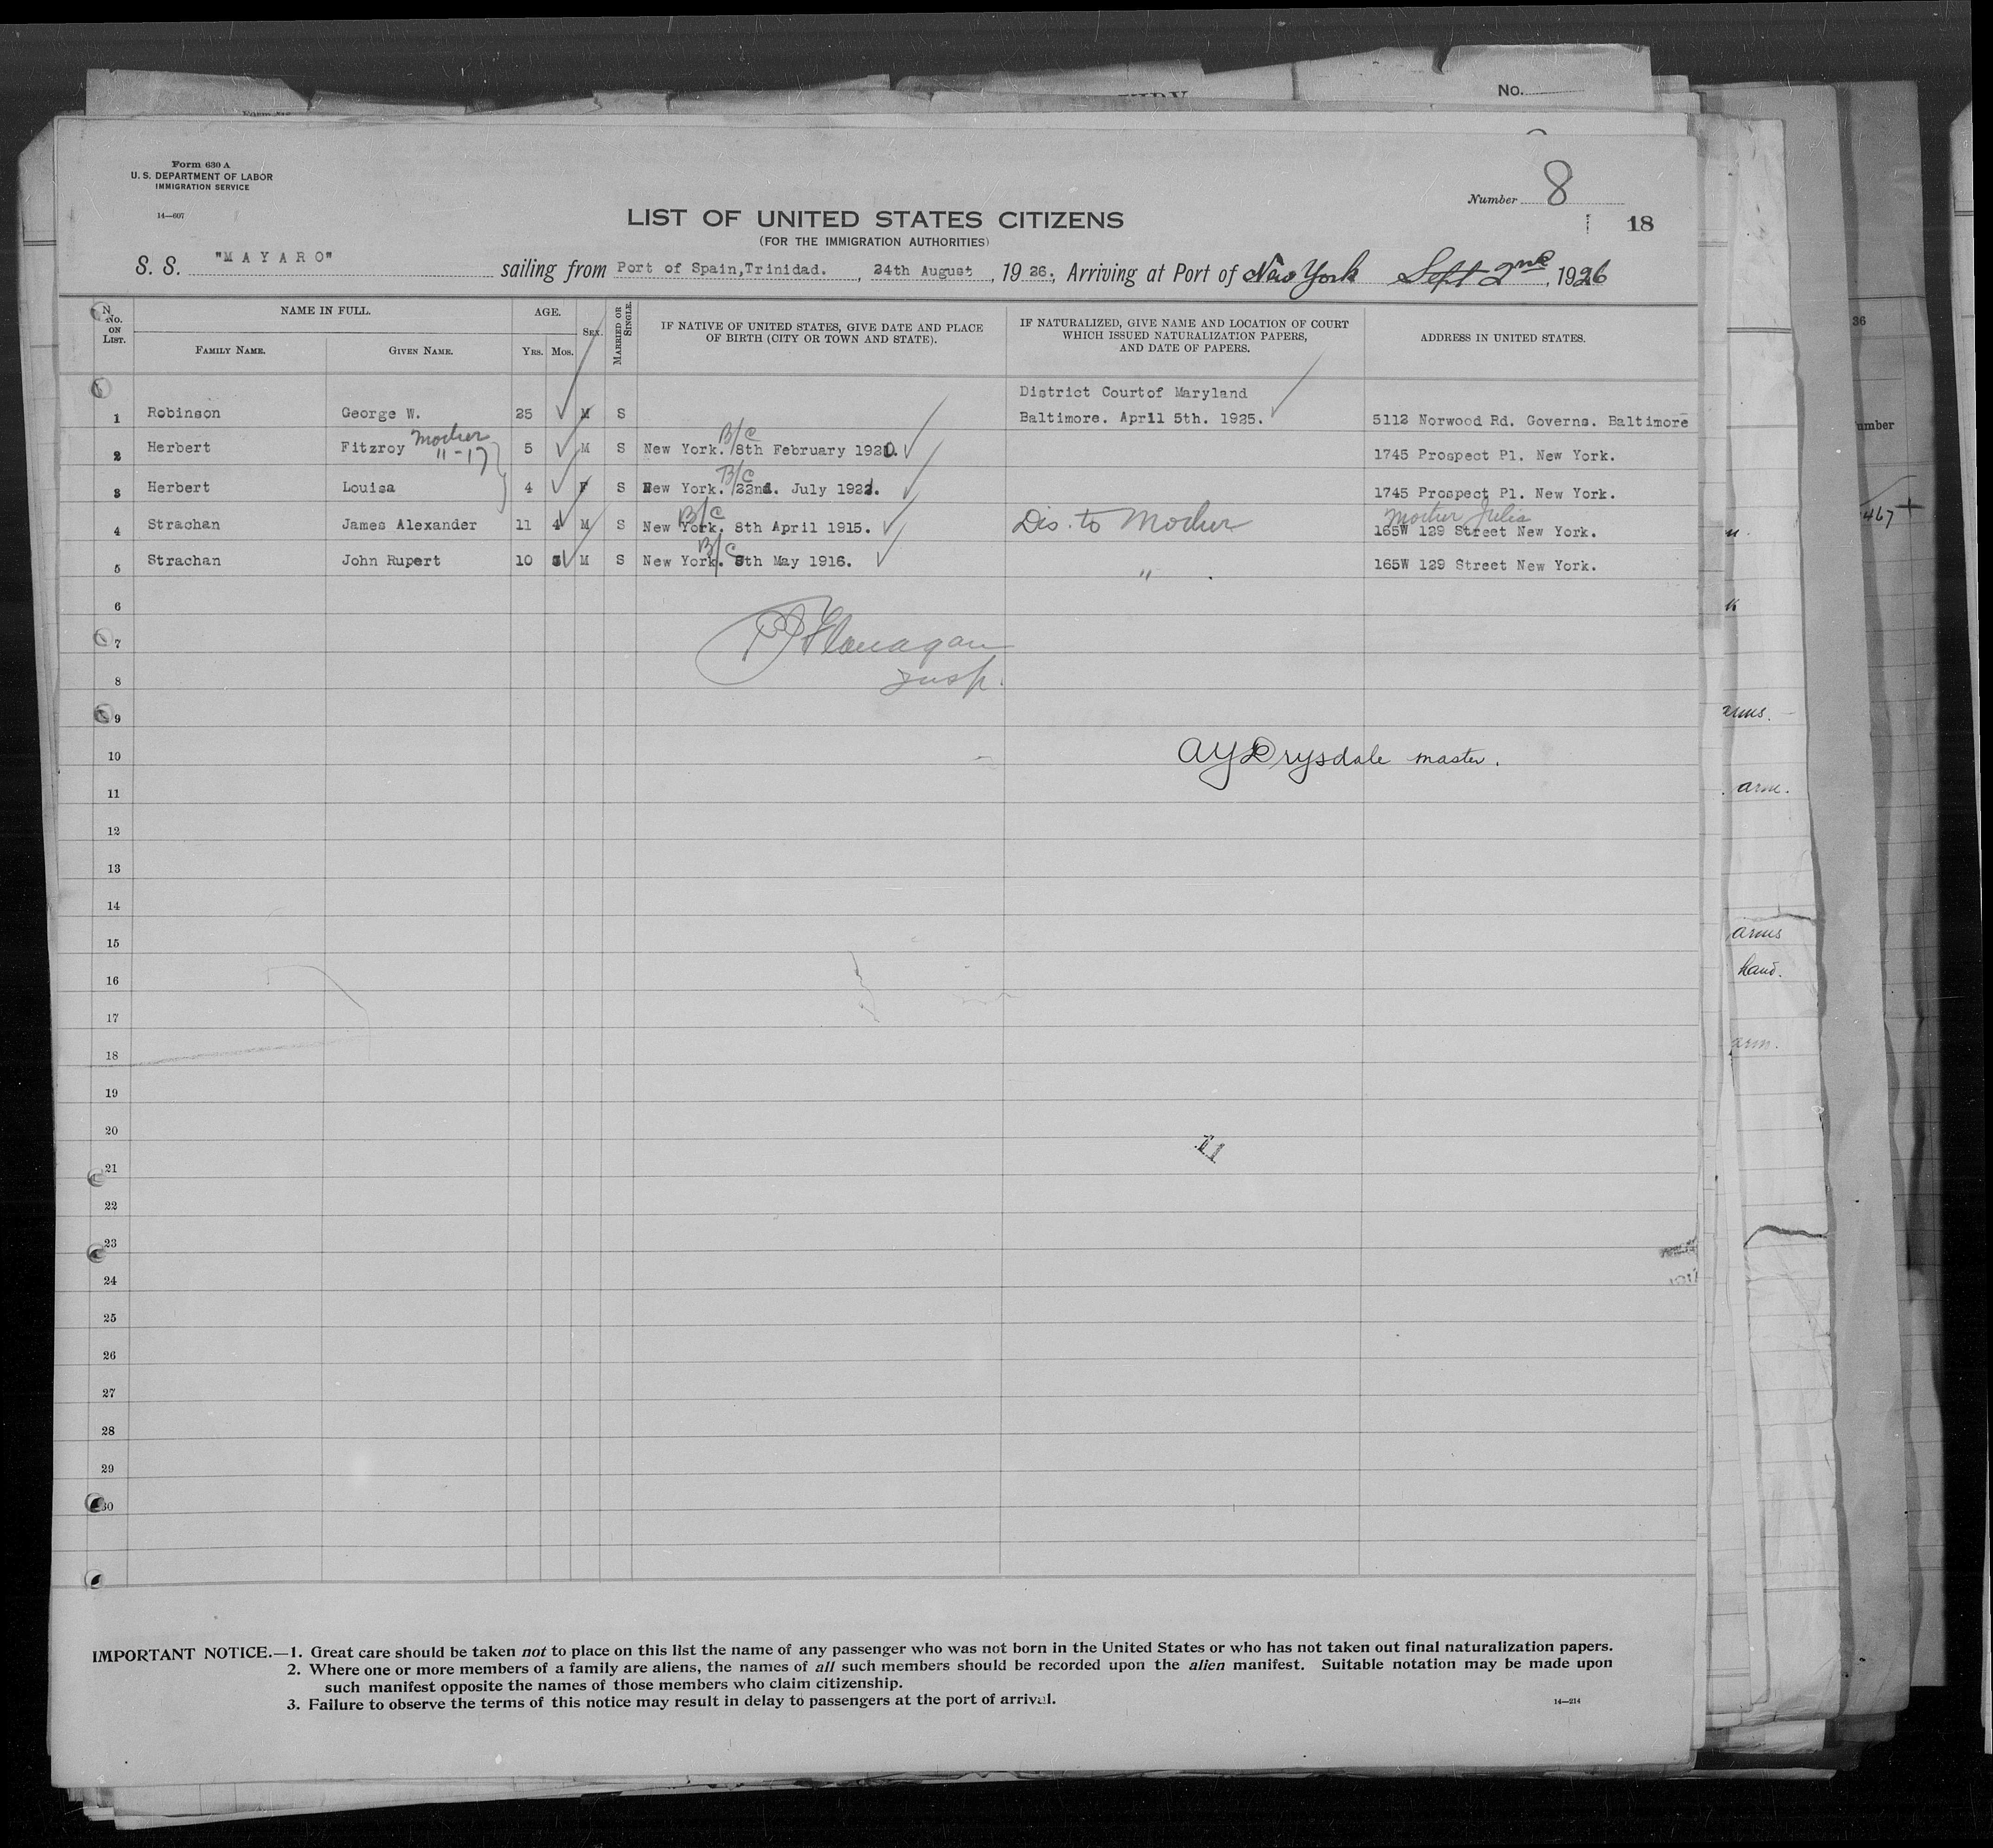 No.
Form 630 A
U. S. DEPARTMENT OF LABOR
IMMIGRATION SERVICE
14—607
Number 8
18
LIST OF UNITED STATES CITIZENS
(FOR THE IMMIGRATION AUTHORITIES)
S. S. "MAYARO" sailing from Port of Spain,Trinidad. , 24th August , 19 26 , Arriving at Port of New York Sept 2nd , 1926
No. ON LIST. NAME IN FULL. AGE. SEX. MARRIED OR SINGLE. IF NATIVE OF UNITED STATES, GIVE DATE AND PLACE OF BIRTH (CITY OR TOWN AND STATE). IF NATURALIZED, GIVE NAME AND LOCATION OF COURT WHICH ISSUED NATURALIZATION PAPERS, AND DATE OF PAPERS. ADDRESS IN UNITED STATES.
FAMILY NAME. GIVEN NAME. YRS. MOS.
District Courtof Maryland
1 Robinson George W. 25 M S Baltimore. April 5th. 1925. 5112 Norwood Rd. Governs. Baltimore
Mother B/C
2 Herbert Fitzroy 11-17 5 M S New York. 8th February 1920. 1745 Prospect Pl. New York.
B/C
3 Herbert Louisa 4 F S New York. 22nd. July 1922. 1745 Prospect Pl. New York.
B/C Mother Julia
4 Strachan James Alexander 11 4 M S New York. 8th April 1915. Dis. to Mother 165W 129 Street New York.
B/C
5 Strachan John Rupert 10 3 M S New York. 8th May 1916. " 165W 129 Street New York.
6
7 Flanagan
8 Insp.
9
10 AY Drysdale master.
11
12
13
14
15
16
17
18
19
20
21
22
23
24
25
26
27
28
29
30
IMPORTANT NOTICE.—1. Great care should be taken not to place on this list the name of any passenger who was not born in the United States or who has not taken out final naturalization papers.
2. Where one or more members of a family are aliens, the names of all such members should be recorded upon the alien manifest. Suitable notation may be made upon
such manifest opposite the names of those members who claim citizenship.
3. Failure to observe the terms of this notice may result in delay to passengers at the port of arrival.
14—214
36
umber
467
arms.
arm.
arms
hand.
arm.